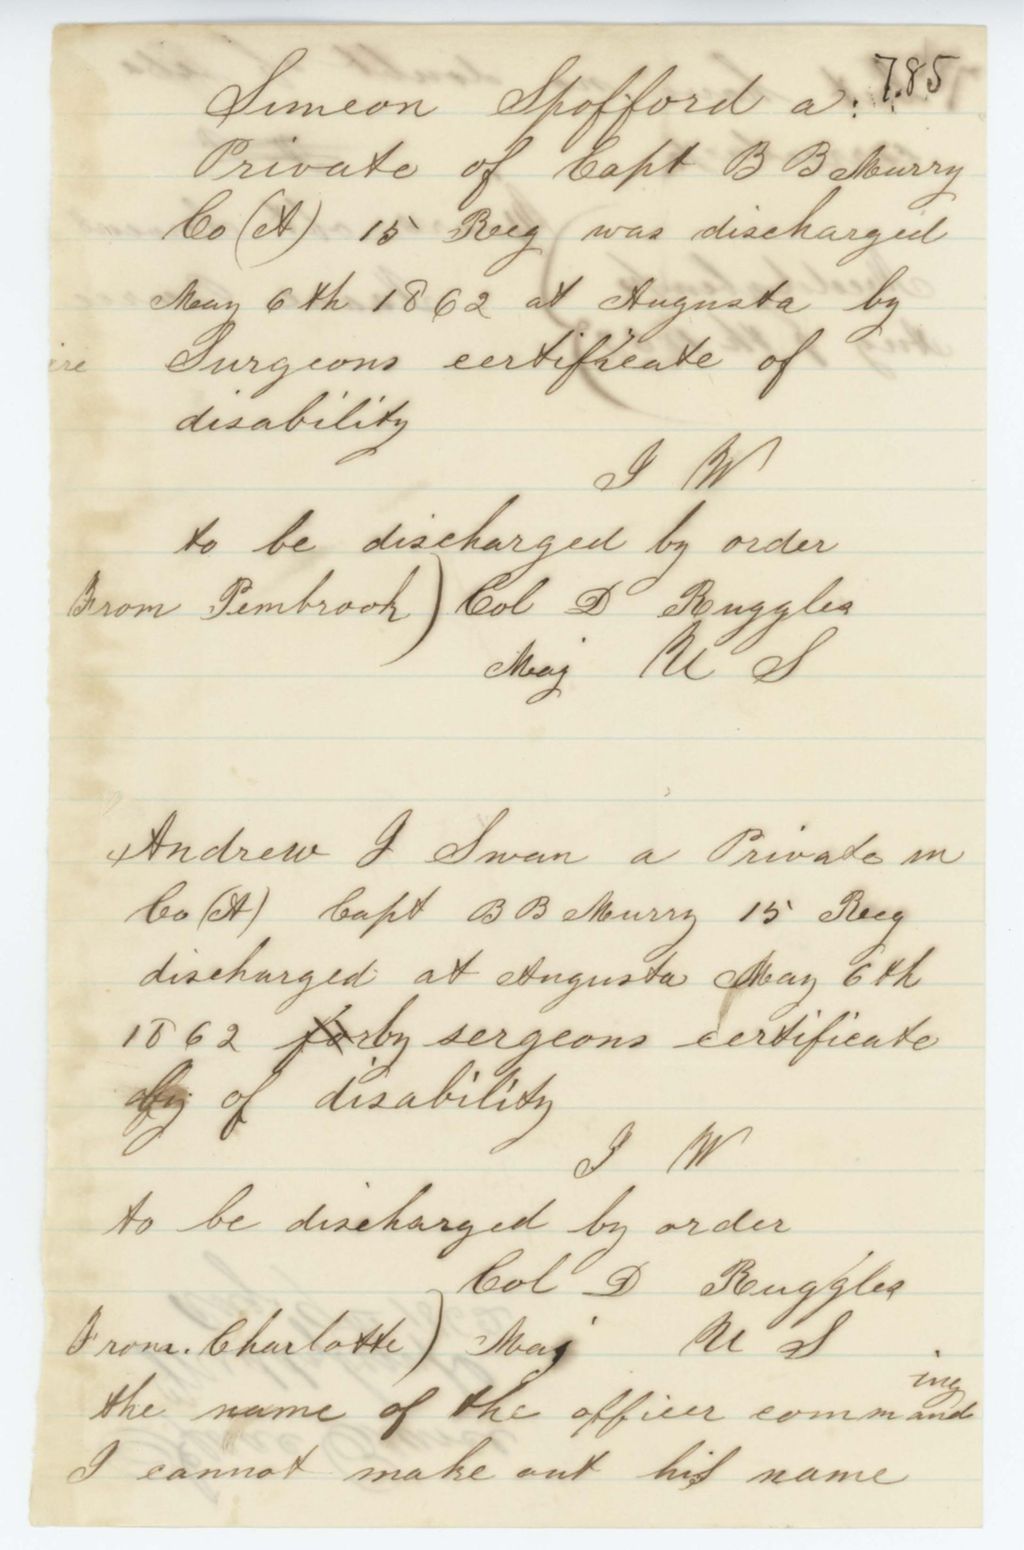 785
Simeon Spofford a
Private of Capt B B Murry
Co (A) 15 Reg was discharged
May 6th 1862 at Augusta by
Surgeons certificate of
disability
J W
to be discharged by order
From Pembrook) Col D Ruggles
Maj U S
Andrew J Swan a Private in
Co (A) Capt B B Murry 15 Reg
discharged at Augusta May 6th
1862 by sergeons certificate
of disability
J W
to be discharged by order
Col D Ruggles
From Charlotte) Maj U S
the name of the officer commanding
I cannot make out his name